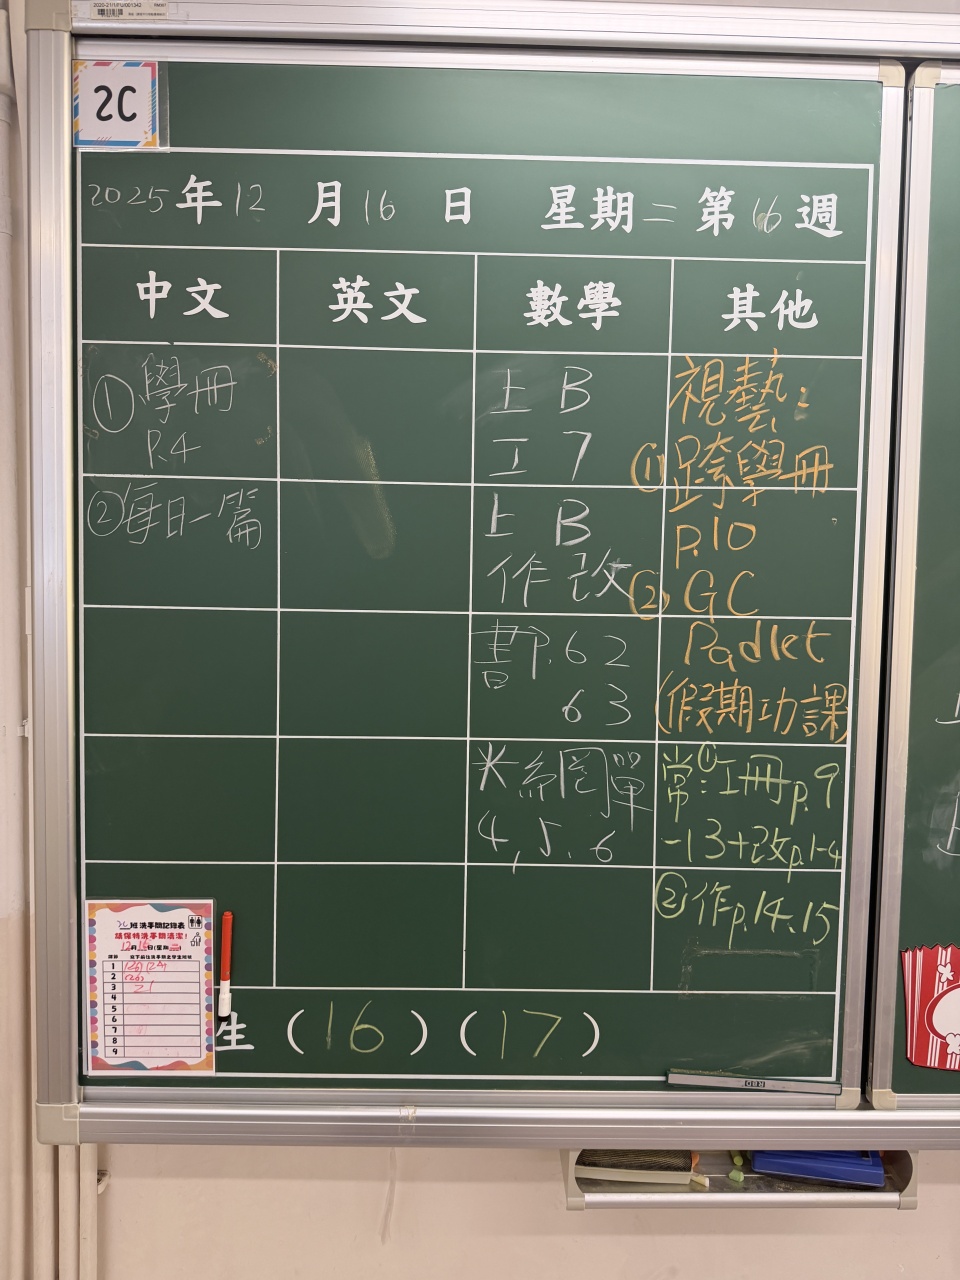 2020-21/1/FU/001342
2C
2025年12月16日 星期二 第16週
中文 英文 數學 其他
①學冊
P.4
②每日一篇
上B
工7
上B
作改
書P.62
63
米網圈單
4,5,6
視藝:
①跨學冊
p.10
②GC
Padlet
(假期功課)
常:①工冊p.9
-13+改p.1-4
②作p.14、15
生(16)(17)
2C班洗手間記錄表
請保持洗手間清潔!
12月16日(星期二)
1
2
3 21
4
5
6
7
8
9